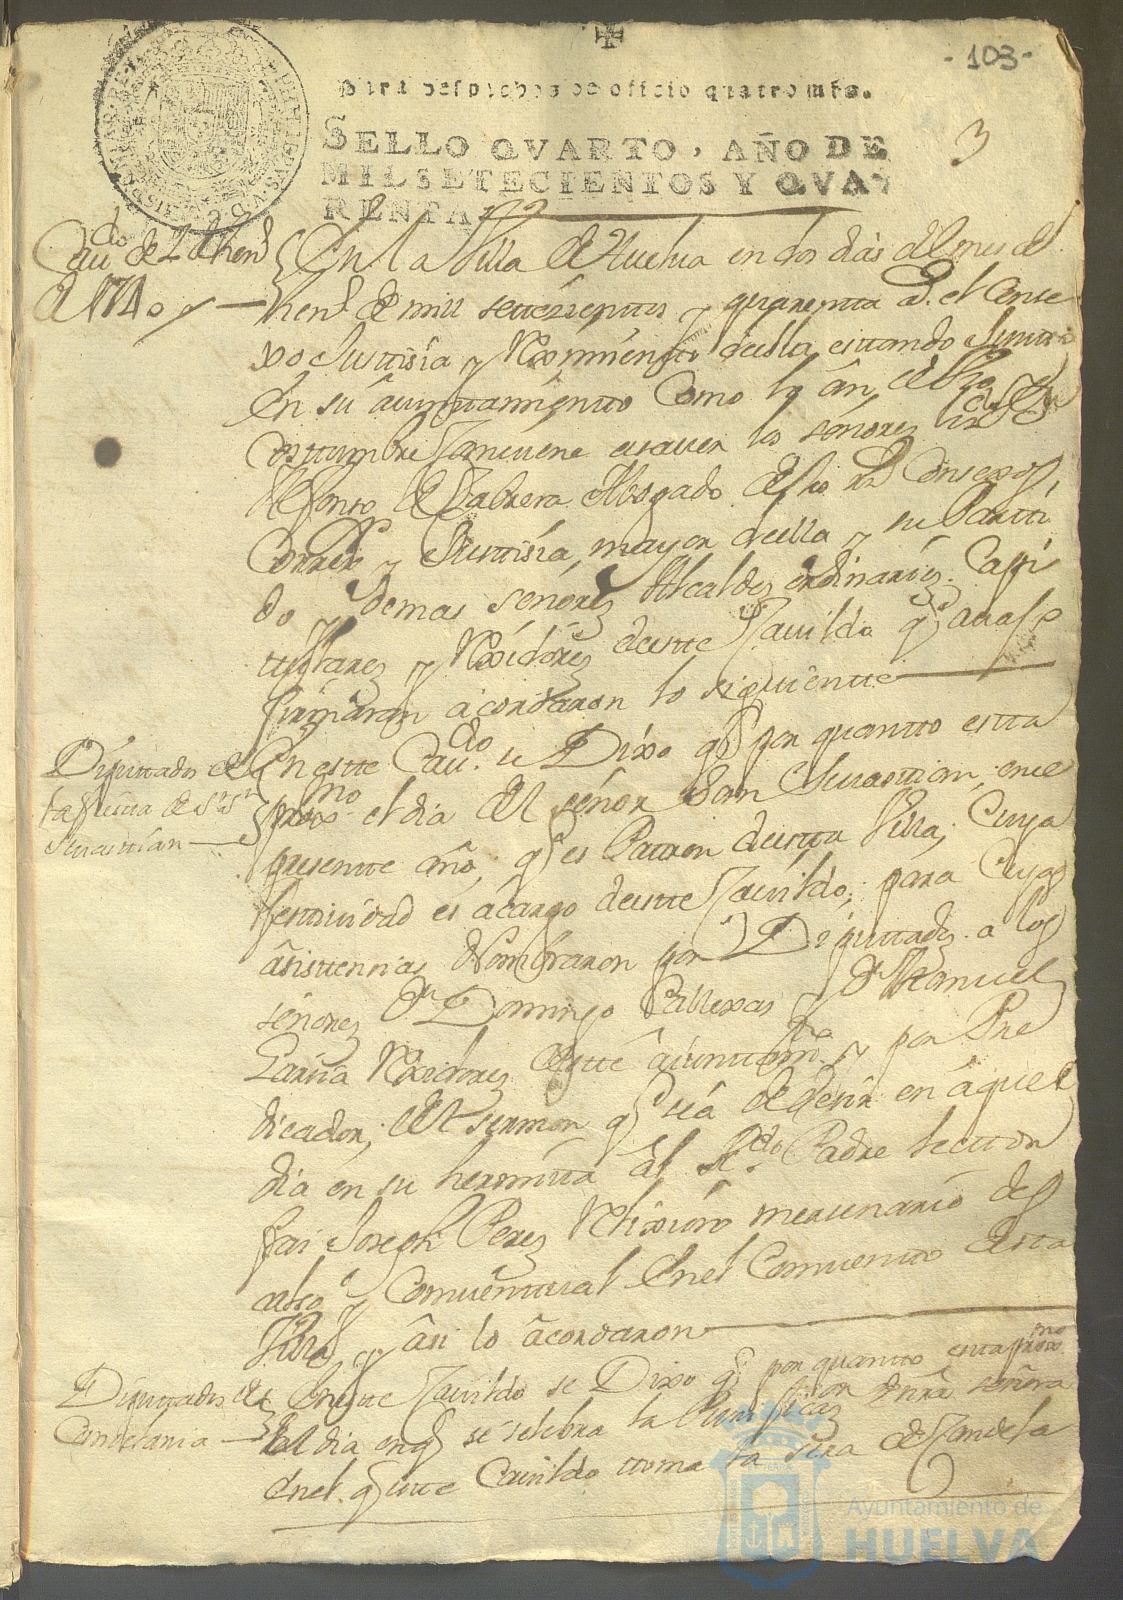 -103-
Para despachos de officio quatro mrs.
3
SELLO QVARTO, AÑO DE
MIL SETECIENTOS Y QVA-
RENTA
Cavdo de 2 de hen.º
de 1740
En la Villa de Huelva en dos dias del mes de
hen.º de mill settezientos y quarenta a.s el Conse
xo Justisia y Reximiento della estando Juntos
en su aiuntamiento Como lo an de Vso y
costumbre combiene a saver los señores
Alfonso de Cabrera Abogado de los R.s Consexos,
Corre.or y Justisia mayor della y su Partti
do y demas señores Alcaldes ordinarios Capi
tulares y Rexidores deste Cavildo q.e avaxo
firmaran acordaron lo siguiente
Diputtados de
la fiesta de S.r S.n
Sevastian
En este Cav.do se Dixo q.e por quantto esta
proximo el dia del señor San Sevastian, en el
presentte año, q.e es Patron desta Villa, Cuya
festividad es a cargo deste Cavildo, para Cuyas
asistencias Nombraron por Diputtados a los
señores D.n Domingo Vallexas y D.n Manuel
Garzia Rexidores deste aiuntam.to y por Pre
dicador, del sermon q.e sea de desir en aquel
dia en su hermita al R.do Padre lecttor
frai Joseph Perez Relixioso mercenario des
calso y Comventual en el Comvento desta
Villa y asi lo acordaron
Diputtados de
Candelaria
En este Cavildo se Dixo q.e por quantto esta proximo
el dia en q.e se selebra la Purificaz.on de nra señora
en el q.e este Cavildo toma la sera de Candela
Ayuntamiento de
HUELVA